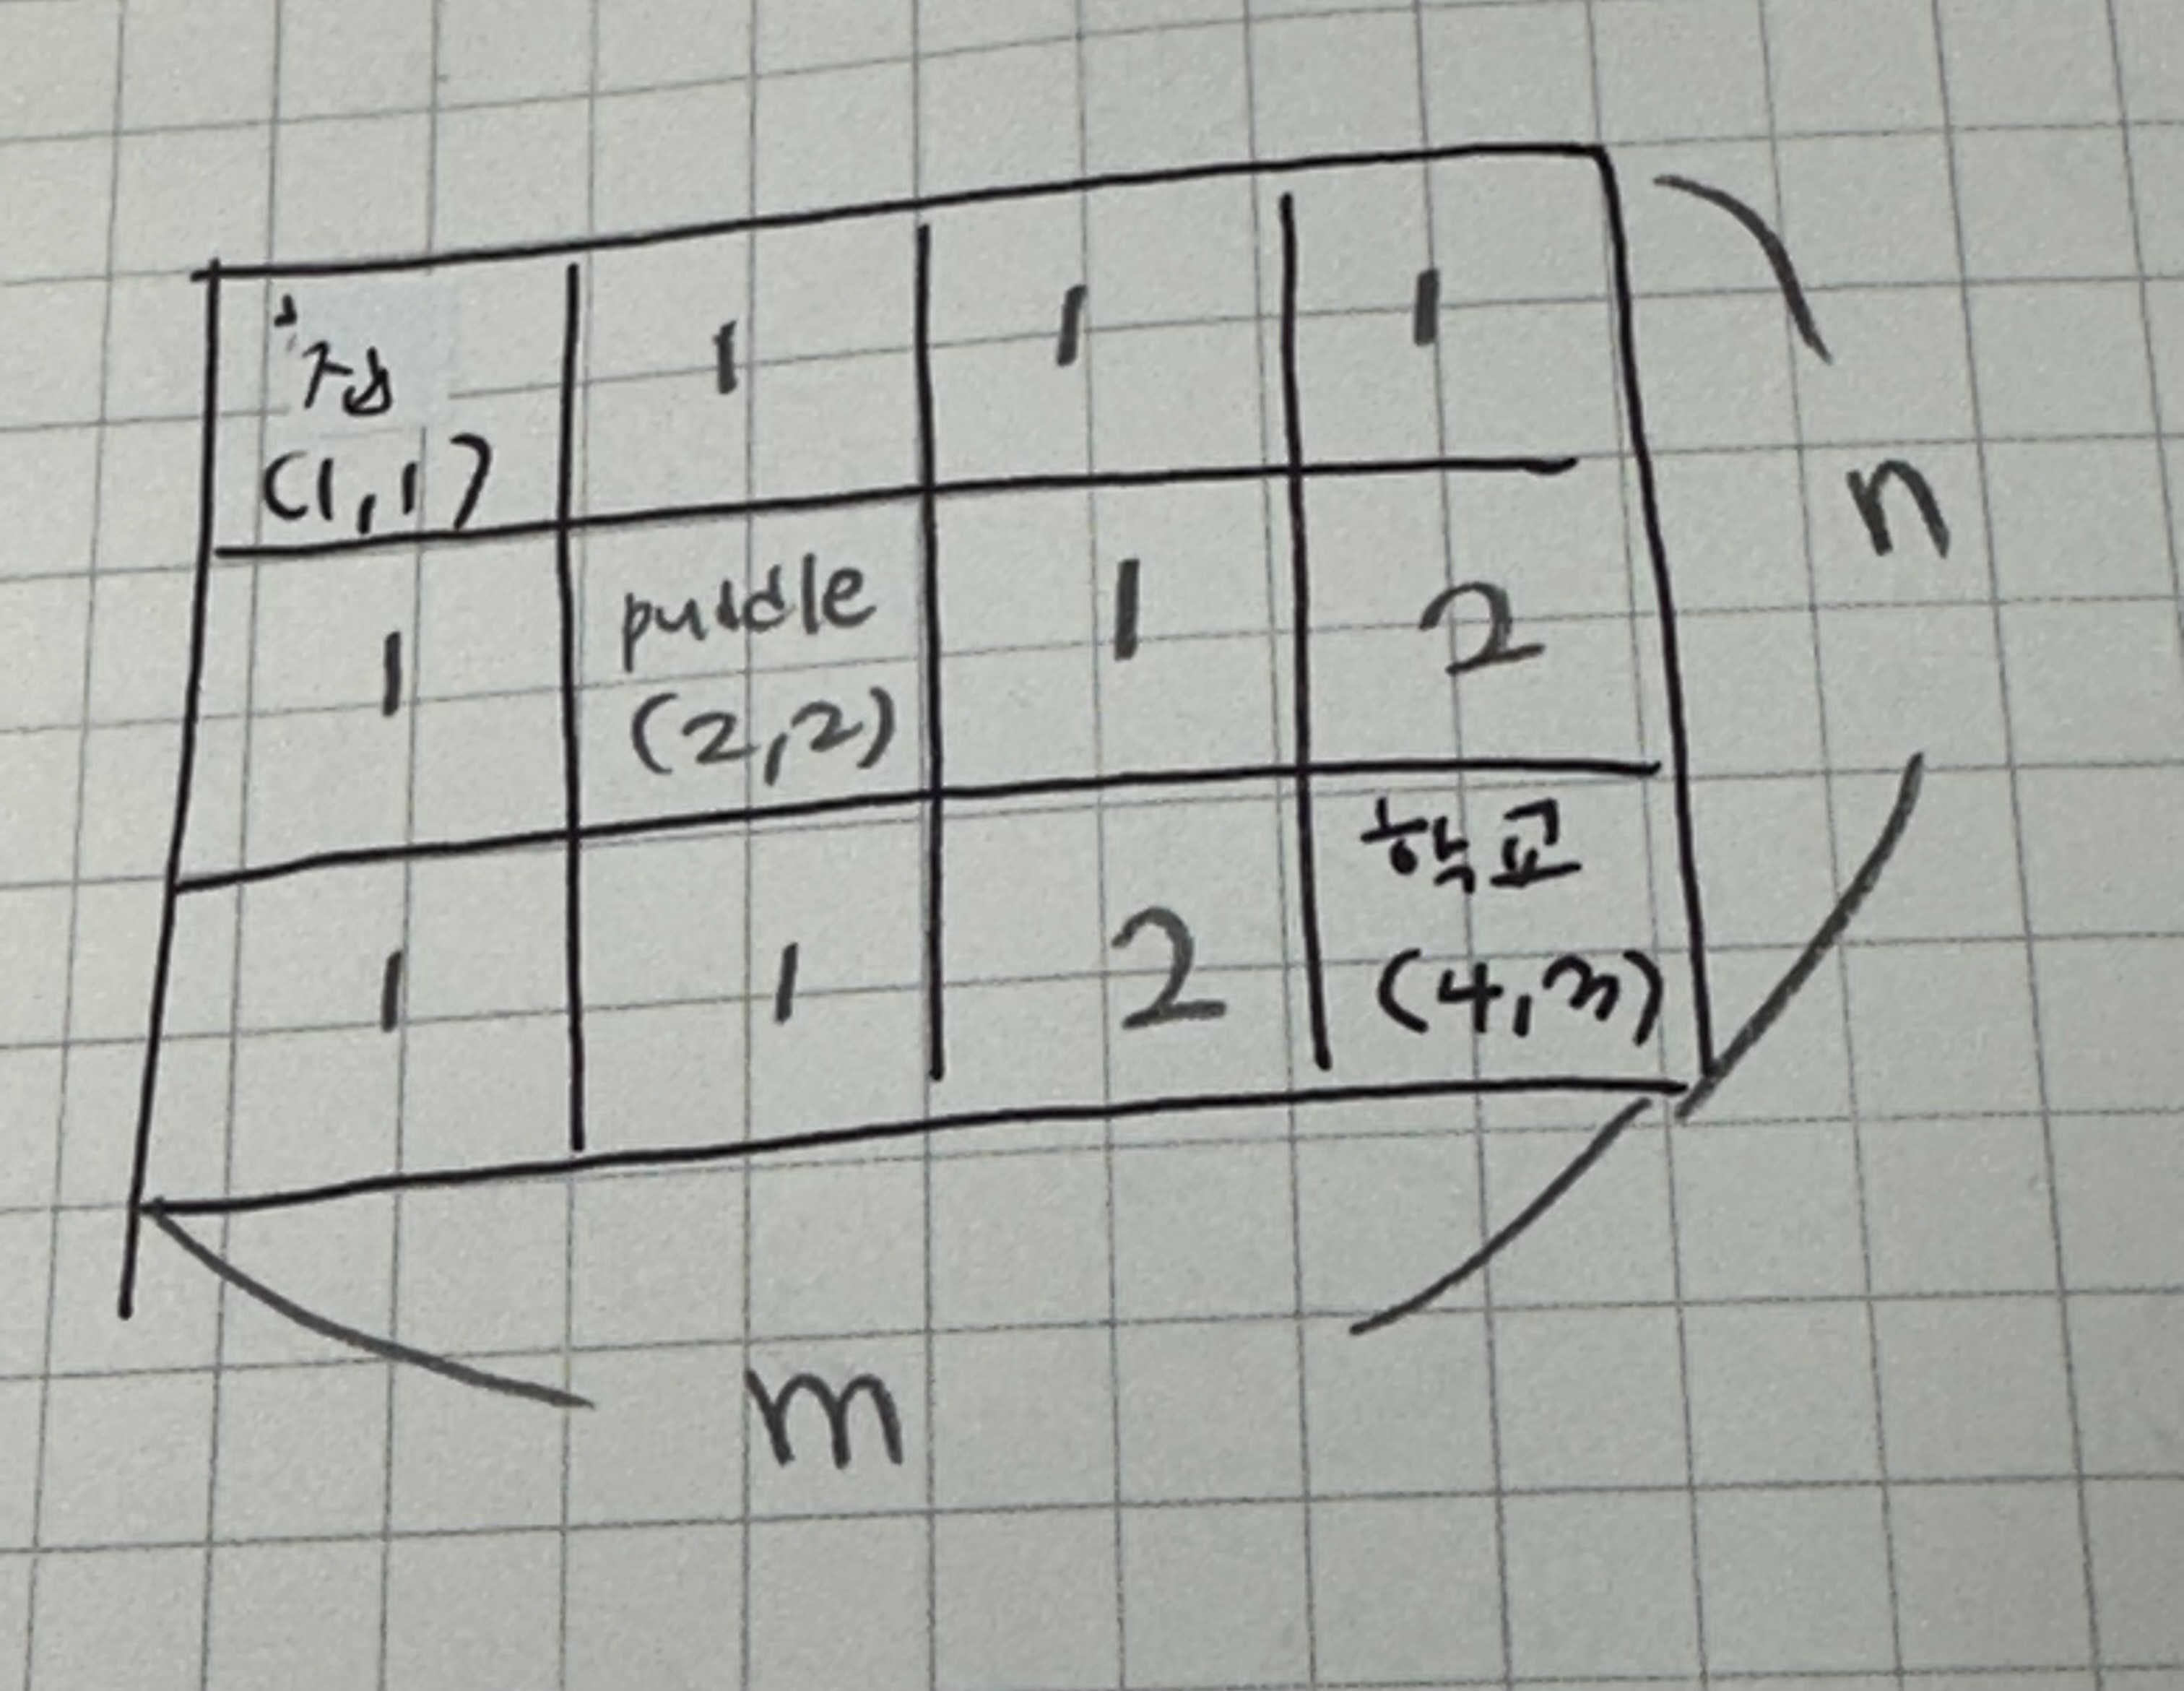 집
(1,1)
1
1
1
1
puddle
(2,2)
1
2
1
1
2
학교
(4,3)
n
m